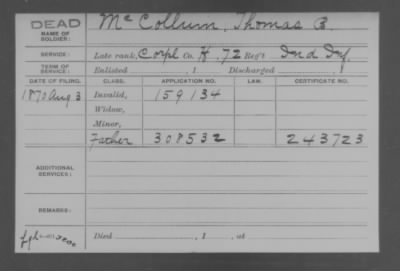 DEAD
NAME OF SOLDIER: McCollum, Thomas B.
SERVICE: Late rank, Corpl Co. H, 72 Reg't Ind Inf.
TERM OF SERVICE: Enlisted , 1 Discharged
DATE OF FILING. CLASS. APPLICATION NO. LAW. CERTIFICATE NO.
1870 Aug 3 Invalid, 159134
Widow,
Minor,
Father 308532 243723
ADDITIONAL SERVICES:
REMARKS:
Died , 1 , at